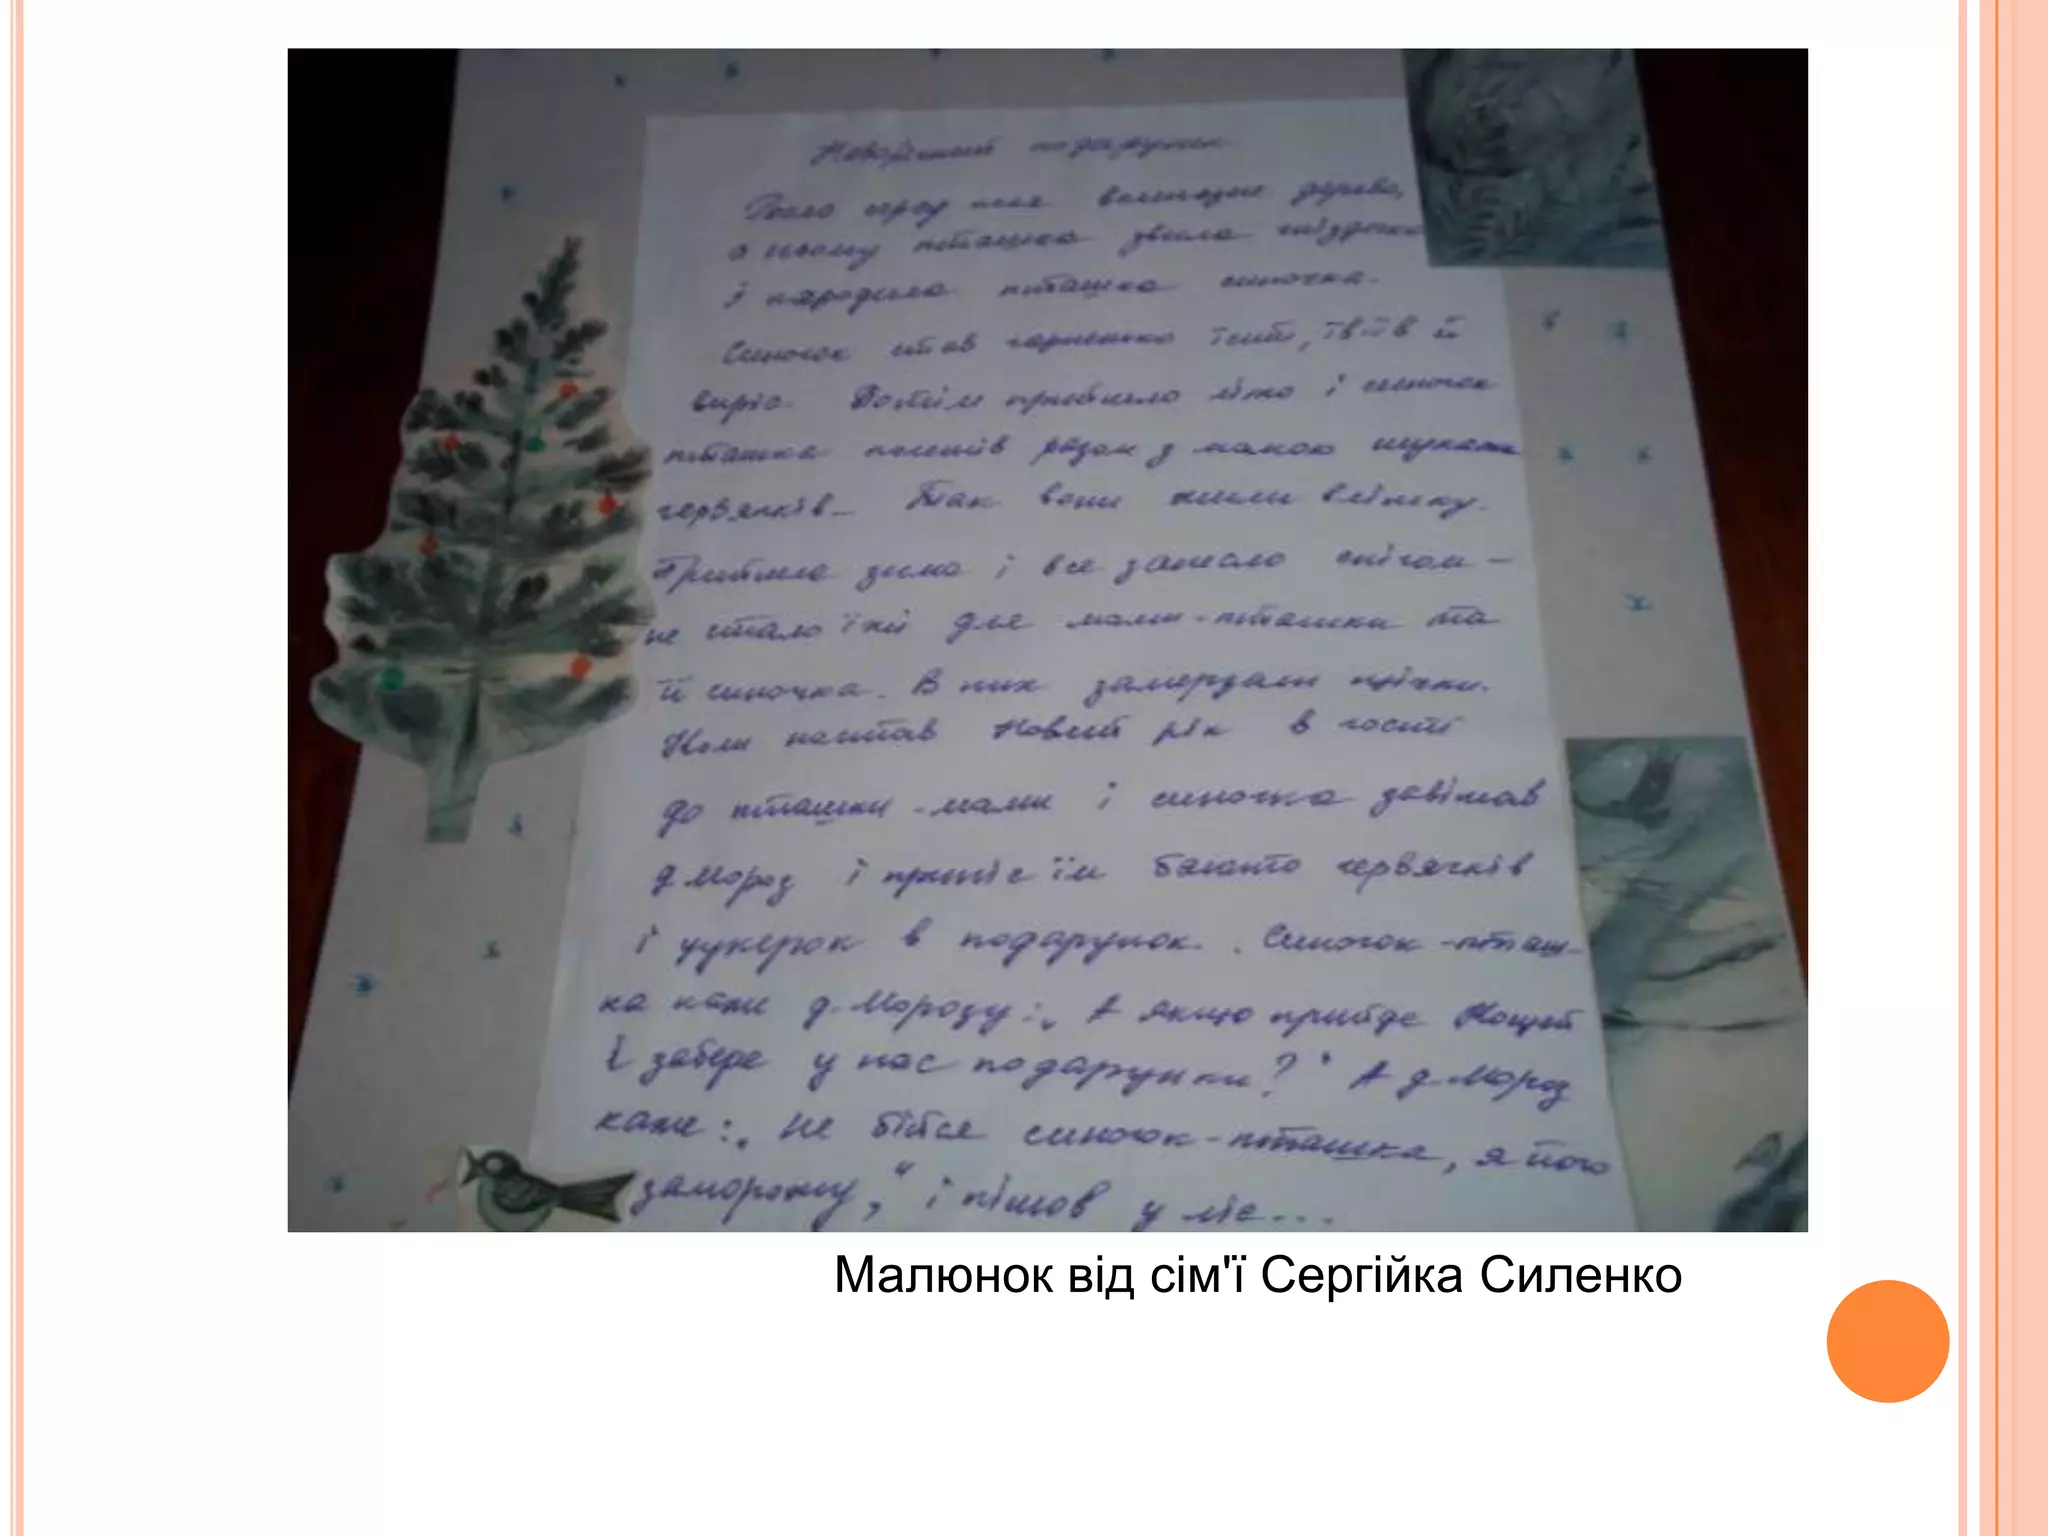 Новорічний подарунок
Росло серед поля величезне дерево,
а ньому пташка звила гніздечко
і народила пташка синочка.
Синочок став гарненько їсти, їв їв й
виріс. Потім прийшло літо і синочок
пташка полетів разом з мамою шукати
червячків. Так вони жили влітку.
Прийшла зима і все занесло снігом -
не стало їжі для мами-пташки та
її синочка. В них замерзали щічки.
Коли настав Новий рік в гості
до пташки-мами і синочка завітав
д Мороз і приніс їм багато червячків
і цукерок в подарунок. Синочок-пташ-
ка каже д. Морозу: „А якщо прийде Кощей
і забере у нас подарунки?" А д Мороз
каже: „Не бійся синочок-пташка, я його
заморожу," і пішов у ліс...
Малюнок від сім'ї Сергійка Силенко